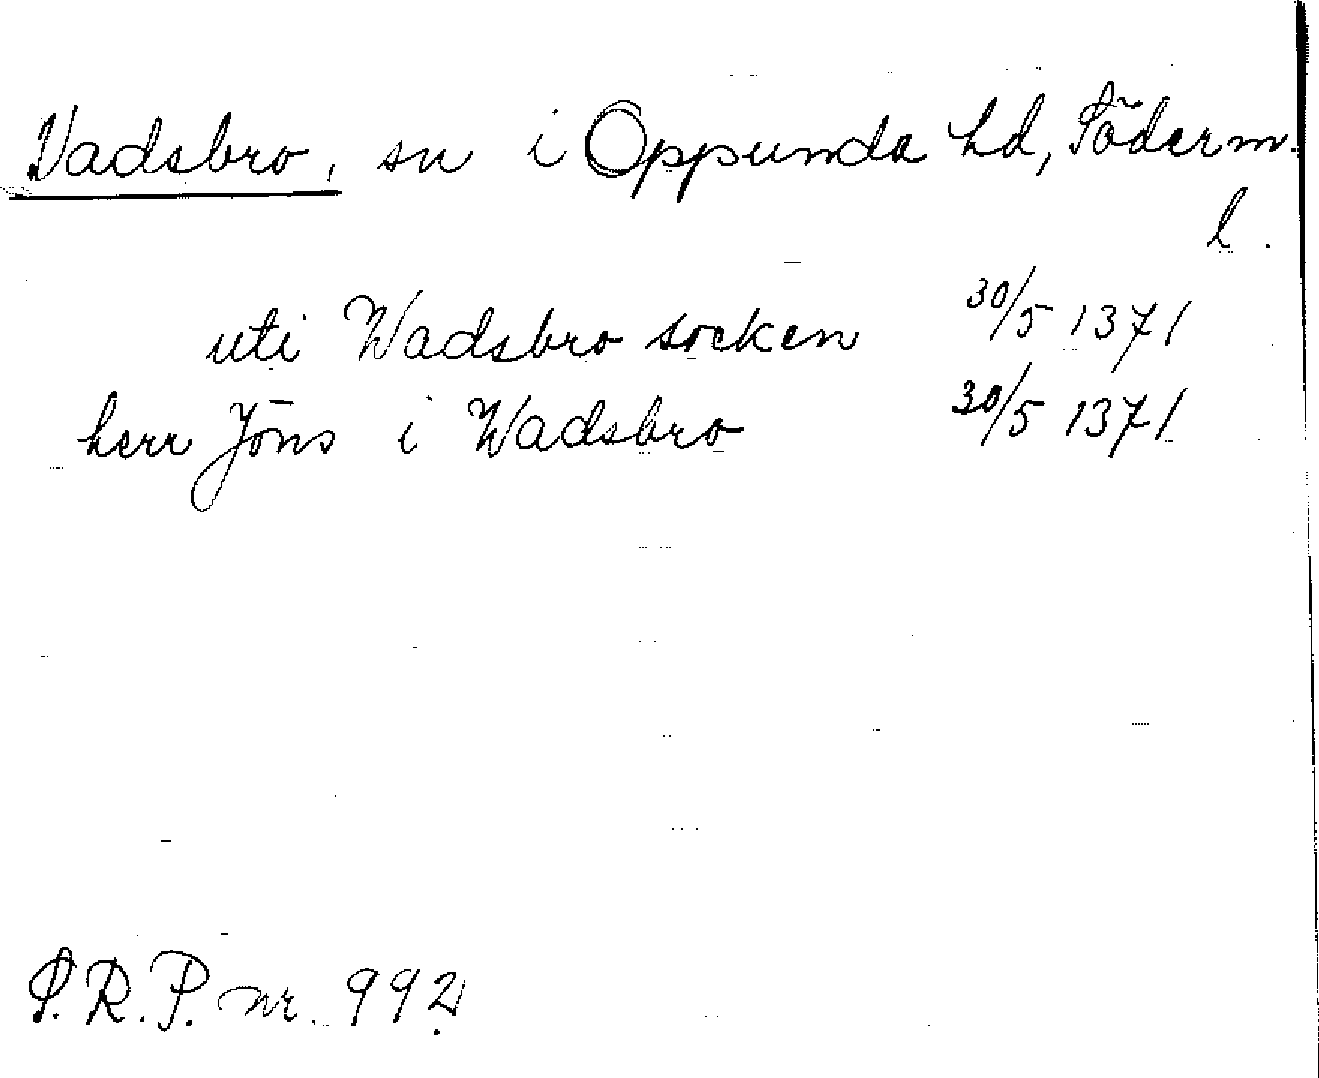 Vadsbro, sn i Oppunda hd, Söderm.
l.
uti Wadsbro socken 30/5 1371
herr Jöns i Wadsbro 30/5 1371
S.R.P. nr. 992